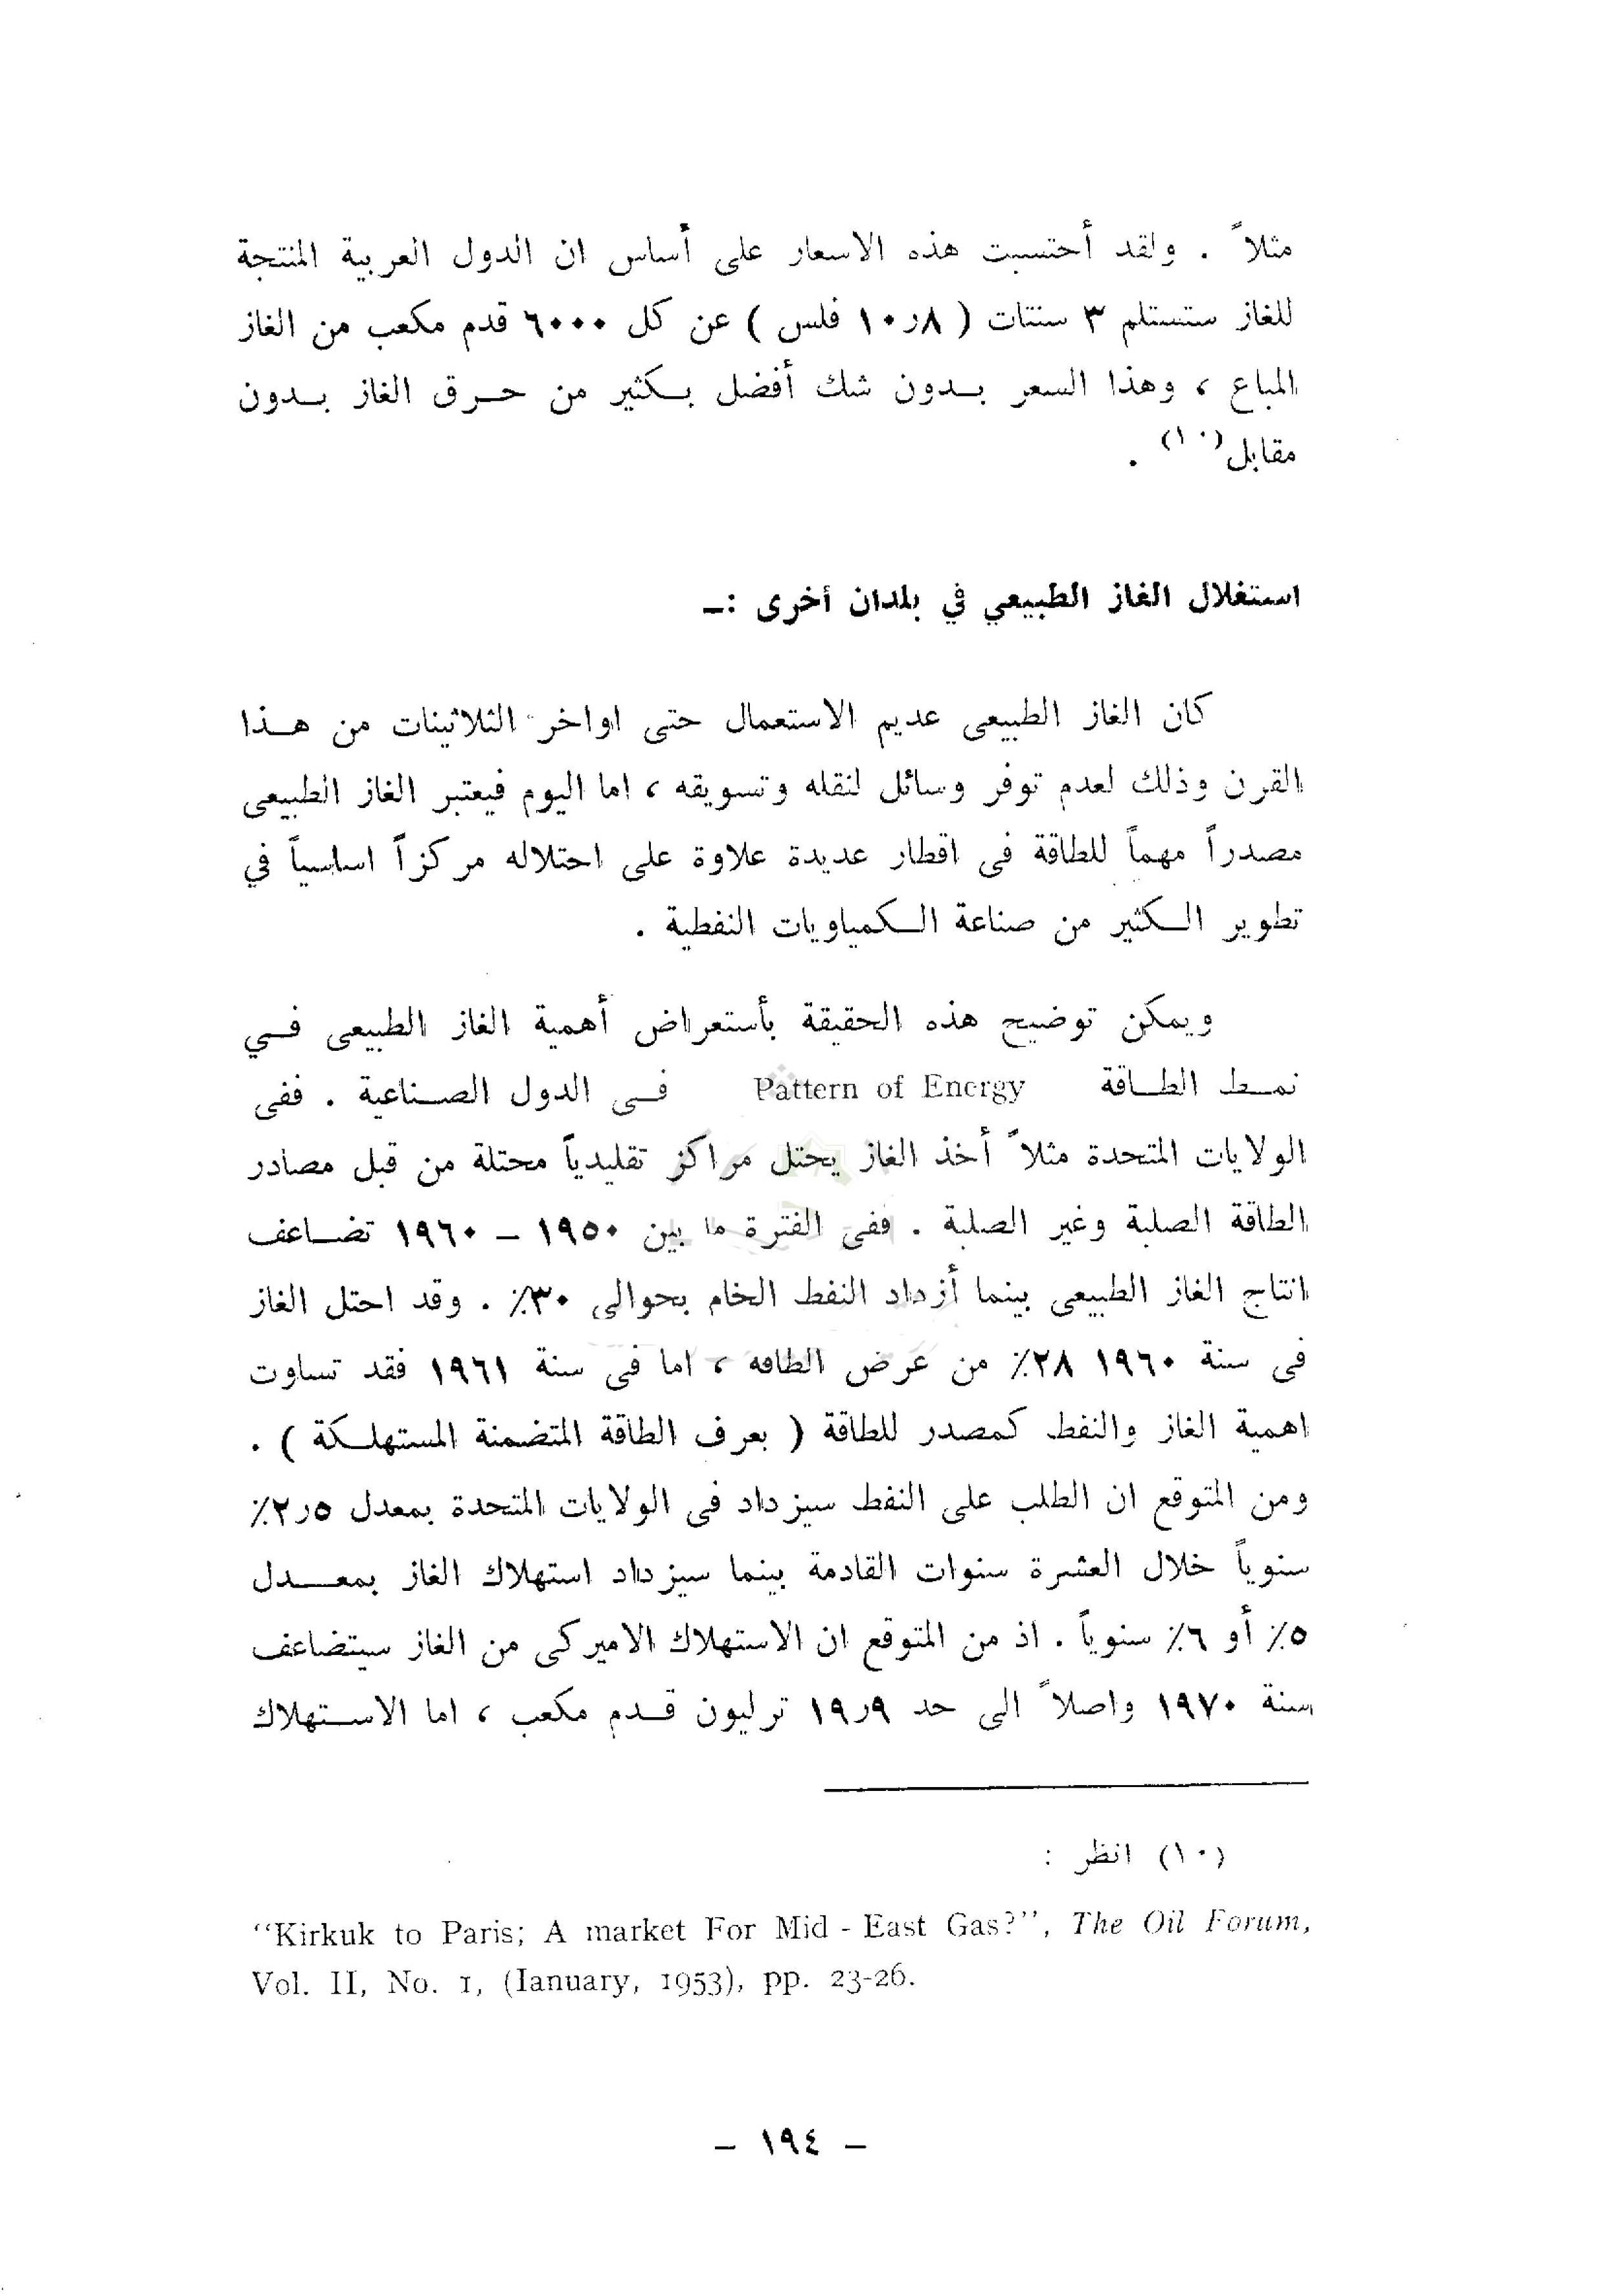 مثلاً . ولقد أحتسبت هذه الاسعار على أساس ان الدول العربية المنتجة
للغاز ستستلم ٣ سنتات ( ٨ر١٠ فلس ) عن كل ٦٠٠٠ قدم مكعب من الغاز
المباع ، وهذا السعر بـدون شك أفضل بـكثير من حـرق الغاز بـدون
مقابل(١٠) .
استغلال الغاز الطبيعي في بلدان أخرى :ـ
كان الغاز الطبيعى عديم الاستعمال حتى اواخر الثلاثينات من هـذا
القرن وذلك لعدم توفر وسائل لنقله وتسويقه ، اما اليوم فيعتبر الغاز الطبيعى
مصدراً مهماً للطاقة فى اقطار عديدة علاوة على احتلاله مركزاً اساسياً في
تطوير الـكثير من صناعة الـكمياويات النفطية .
ويمكن توضيح هذه الحقيقة بأستعراض أهمية الغاز الطبيعى فـي
نمـط الطـاقة Pattern of Energy فـى الدول الصـناعية . ففى
الولايات المتحدة مثلاً أخذ الغاز يحتل مراكز تقليدياً محتلة من قبل مصادر
الطاقة الصلبة وغير الصلبة . ففى الفترة ما بين ١٩٥٠ – ١٩٦٠ تضـاعف
انتاج الغاز الطبيعى بينما أزداد النفط الخام بحوالى ٣٠٪ . وقد احتل الغاز
فى سنة ١٩٦٠ ٢٨٪ من عرض الطاقه ، اما فى سنة ١٩٦١ فقد تساوت
اهمية الغاز والنفط كمصدر للطاقة ( بعرف الطاقة المتضمنة المستهلـكة ) .
ومن المتوقع ان الطلب على النفط سيزداد فى الولايات المتحدة بمعدل ٥ر٢٪
سنوياً خلال العشرة سنوات القادمة بينما سيزداد استهلاك الغاز بمعـدل
٥٪ أو ٦٪ سنوياً . اذ من المتوقع ان الاستهلاك الاميركى من الغاز سيتضاعف
سنة ١٩٧٠ واصلاً الى حد ٩ر١٩ ترليون قـدم مكعب ، اما الاسـتهلاك
(١٠) انظر :
“Kirkuk to Paris; A market For Mid - East Gas?”, The Oil Forum,
Vol. II, No. 1, (Ianuary, 1953), pp. 23-26.
– ١٩٤ –